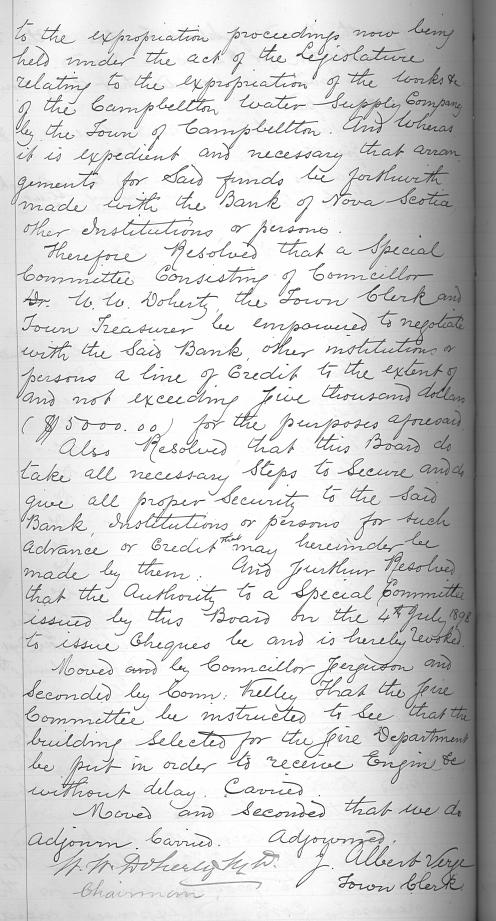 to the expropriation proceedings now being
held under the act of the Legislature
relating to the expropriation of the works &c
of the Campbellton Water Supply Company
by the Town of Campbellton. And Wheras
it is expedient and necessary that arran
gements for Said funds be forthwith
made with the Bank of Nova Scotia
other Institutions or persons.
Therefore Resolved that a Special
Committee Consisting of Councillor
Dr. W. W. Doherty, the Town Clerk and
Town Treasurer be empowered to negotiate
with the Said Bank, other institutions or
persons a line of Credit to the extent of
and not exceeding five thousand dollars
($5000.00) for the purposes aforesaid.
Also Resolved that this Board do
take all necessary Steps to Secure and do
give all proper Security to the Said
Bank, Institutions or persons for such
advance or Credit that may hereinder be
made by them. And furthur Resolved
that the Authority to a Special Committee
issued by this Board on the 4th July 1898
to issue Cheques be and is hereby revoked.
Moved and by Councillor Ferguson and
Seconded by Coun: Kelley That the fire
Committee be instructed to See that the
building Selected for the fire Department
be put in order to receive Engin &c
without delay. Carried.
Moved and Seconded that we do
adjourn. Carried. Adjourned.
W. W. Doherty M.D. J. Albert Verge
Chairman Town Clerk